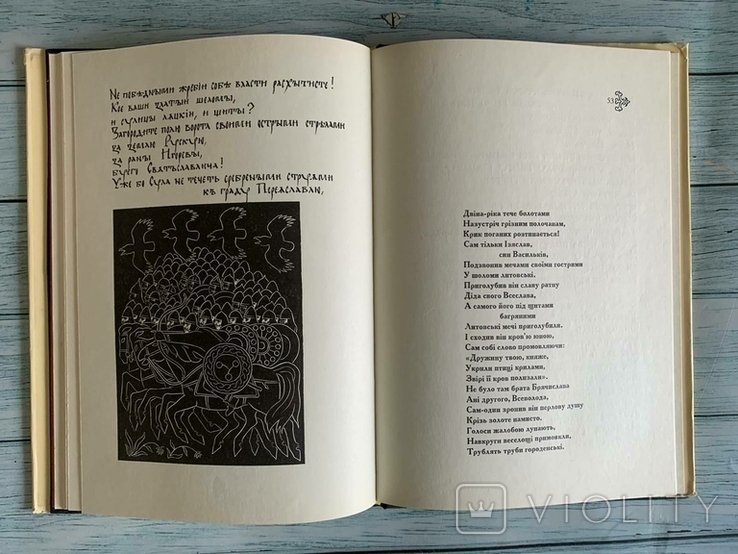 Не побѣдными жребіи собѣ власти расхытисте!
Кое ваши златыи шеломы,
и сулицы ляцкіи, и щиты?
Загородите полю ворота своими острыми стрѣлами
за землю Русскую,
за раны Игоревы,
буего Святъславлича!
Уже бо Сула не течеть сребреными струями
къ граду Переяславлю,
53
Двіна-ріка тече болотами
Назустріч грізним полочанам,
Крик поганих розтинається!
Сам тільки Ізяслав,
син Васильків,
Подзвонив мечами своїми гострими
У шоломи литовські,
Приголубив він славу ратну
Діда свого Всеслава,
А самого його під щитами
багряними
Литовські мечі приголубили.
І сходив він кров'ю юною,
Сам собі слово промовляючи:
«Дружину твою, княже,
Укрили птиці крилами,
Звірі її кров полизали».
Не було там брата Брячислава
Ані другого, Всеволода,
Сам-один зронив він перлову душу
Крізь золоте намисто.
Голоси жалобою лунають,
Навкруги веселощі примовкли,
Трублять труби городенські.
VIOLITY